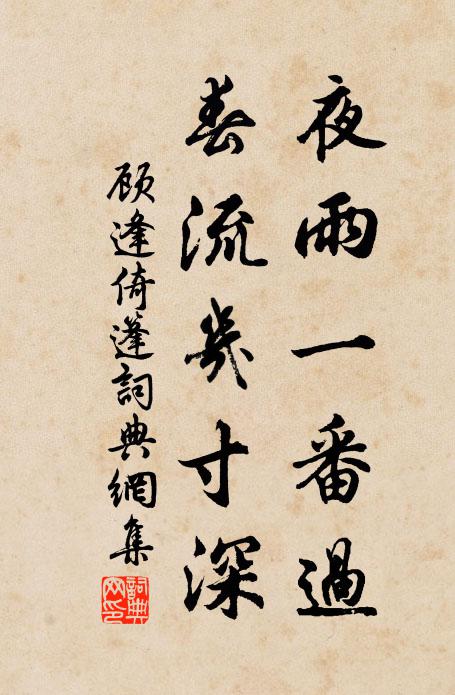 夜雨一番過
春流幾寸深
顾逢倚蓬詞典網集
詞典
网印